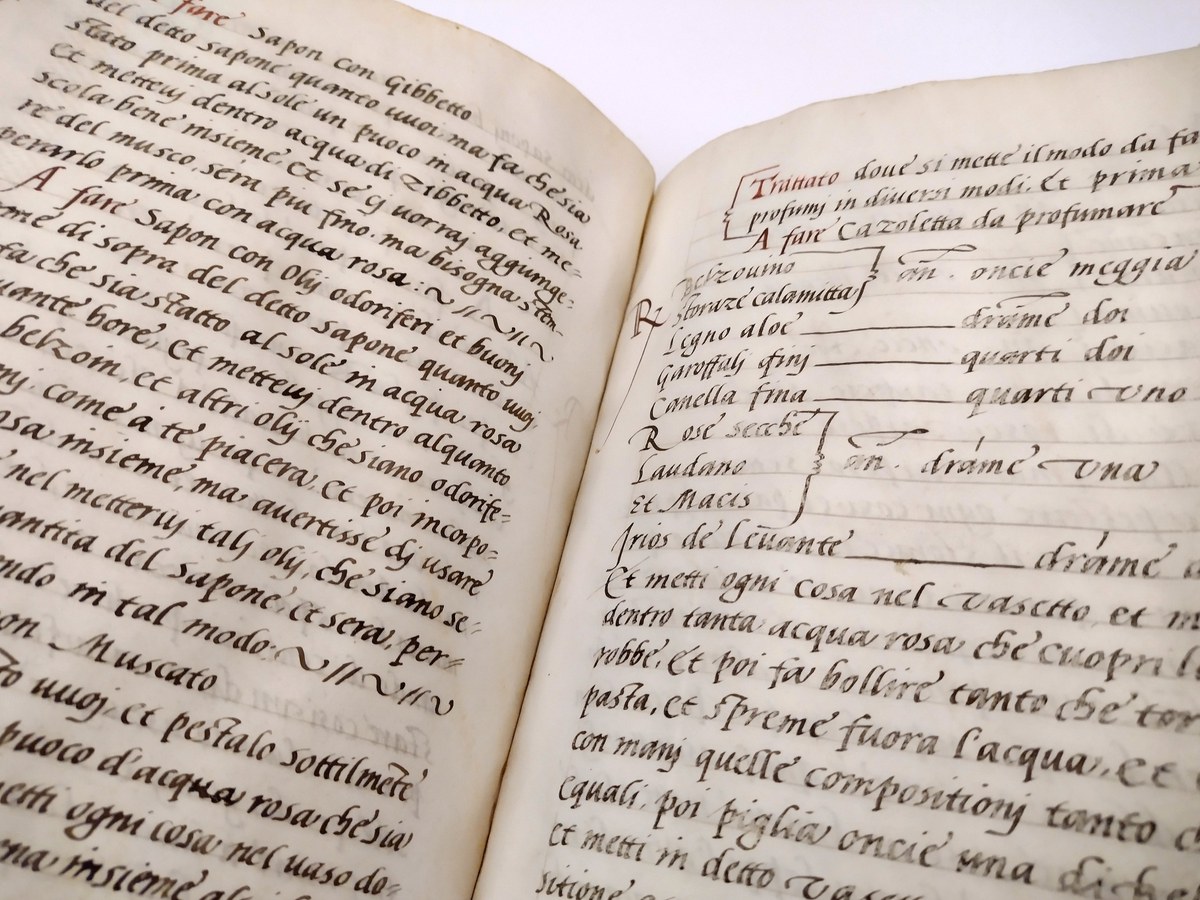 fare Sapon con Gibbetto
del detto sapone quanto uuoi, ma fa che sia
stato prima al sole un puoco in acqua Rosa
et metteuj dentro acqua di Zibbetto, et me-
scola bene insieme, Et se cj uorraj aggiunge-
re del musco, sera piu fino, ma bisogna stem-
perarlo prima con acqua rosa:
A fare Sapon con Olij odoriferi et buonj
di sopra del detto sapone quanto uuoj,
fa che sia statto al sole in acqua rosa
quante bore, Et metteuj dentro alquanto
belzoin, et altri olij che siano odorife-
come à te piacera, Et poi incorpo-
insieme, ma auertisse dj usare
nel metteruj talj olij, che siano se-
quantita del sapone, Et sera, per-
in tal modo:
Muscato
uuoj, et pestalo sottilmẽte
puoco d'acqua rosa che sia
metti ogni cosa nel uaso do-
insieme
Trattato doue si mette il modo da fa
profumj in diuersi modi. Et prima
A fare Cazoletta da profumare
Belzouino
Storaze calamitta an̄. oncie meggia
R Legno aloe drame doi
Garoffalj finj quarti doi
Canella fina quarti uno
Rose secche
Laudano an̄. drame una
Et Macis
Irios de Leuante drame
Et metti ogni cosa nel uasetto, et m
dentro tanta acqua rosa che cuopri l
robbe, Et poi fa bollire tanto che tor
pasta, Et spreme fuora l'acqua, Et
con manj quelle compositionj tanto
equali, poi piglia oncie una di
Et metti in detto
sitione